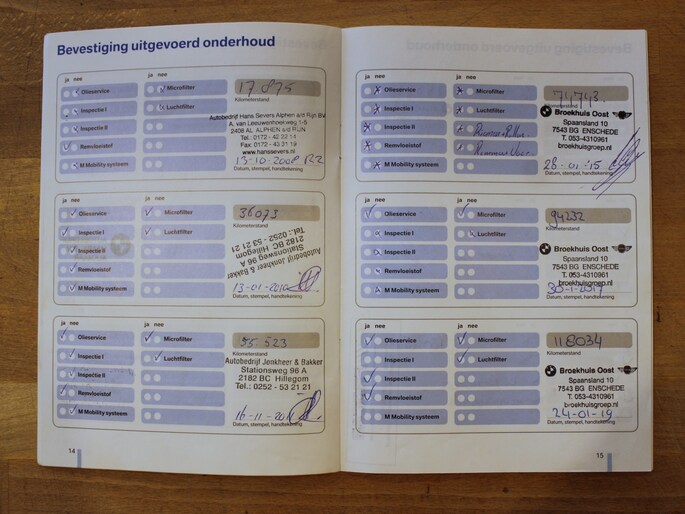 Bevestiging uitgevoerd onderhoud
ja nee
ja nee
Olieservice
Microfilter
17 875
Kilometerstand
Inspectie I
Luchtfilter
Autobedrijf Hans Severs Alphen a/d Rijn BV
A. van Leeuwenhoekweg 1-5
2408 AL ALPHEN a/d RIJN
Tel.: 0172 - 42 33 14
Fax: 0172 - 43 21 19
www.hanssevers.nl
Inspectie II
Remvloeistof
M Mobility systeem
13-10-2008
Datum, stempel, handtekening
ja nee
ja nee
Olieservice
Microfilter
36073
Kilometerstand
Inspectie I
Luchtfilter
Inspectie II
Remvloeistof
M Mobility systeem
Autobedrijf Jonkheer & Bakker
Stationsweg 96 A
2182 BC Hillegom
Tel.: 0252 - 53 21 21
13-01-2010
Datum, stempel, handtekening
ja nee
ja nee
Olieservice
Microfilter
55.523
Kilometerstand
Inspectie I
Luchtfilter
Autobedrijf Jonkheer & Bakker
Stationsweg 96 A
2182 BC Hillegom
Tel.: 0252 - 53 21 21
Inspectie II
Remvloeistof
M Mobility systeem
16-11-20
Datum, stempel, handtekening
14
ja nee
ja nee
Olieservice
Microfilter
74.743.
Inspectie I
Luchtfilter
Broekhuis Oost
Spaansland 10
7543 BG ENSCHEDE
T. 053-4310961
broekhuisgroep.nl
Inspectie II
Remvloeistof
M Mobility systeem
28-01-'15
Datum, stempel, handtekening
ja nee
ja nee
Olieservice
Microfilter
94232
Kilometerstand
Inspectie I
Luchtfilter
Broekhuis Oost
Spaansland 10
7543 BG ENSCHEDE
T. 053-4310961
broekhuisgroep.nl
Inspectie II
Remvloeistof
M Mobility systeem
30-1-2017
Datum, stempel, handtekening
ja nee
ja nee
Olieservice
Microfilter
118034
Kilometerstand
Inspectie I
Luchtfilter
Broekhuis Oost
Spaansland 10
7543 BG ENSCHEDE
T. 053-4310961
broekhuisgroep.nl
Inspectie II
Remvloeistof
M Mobility systeem
24-01-19
Datum, stempel, handtekening
15